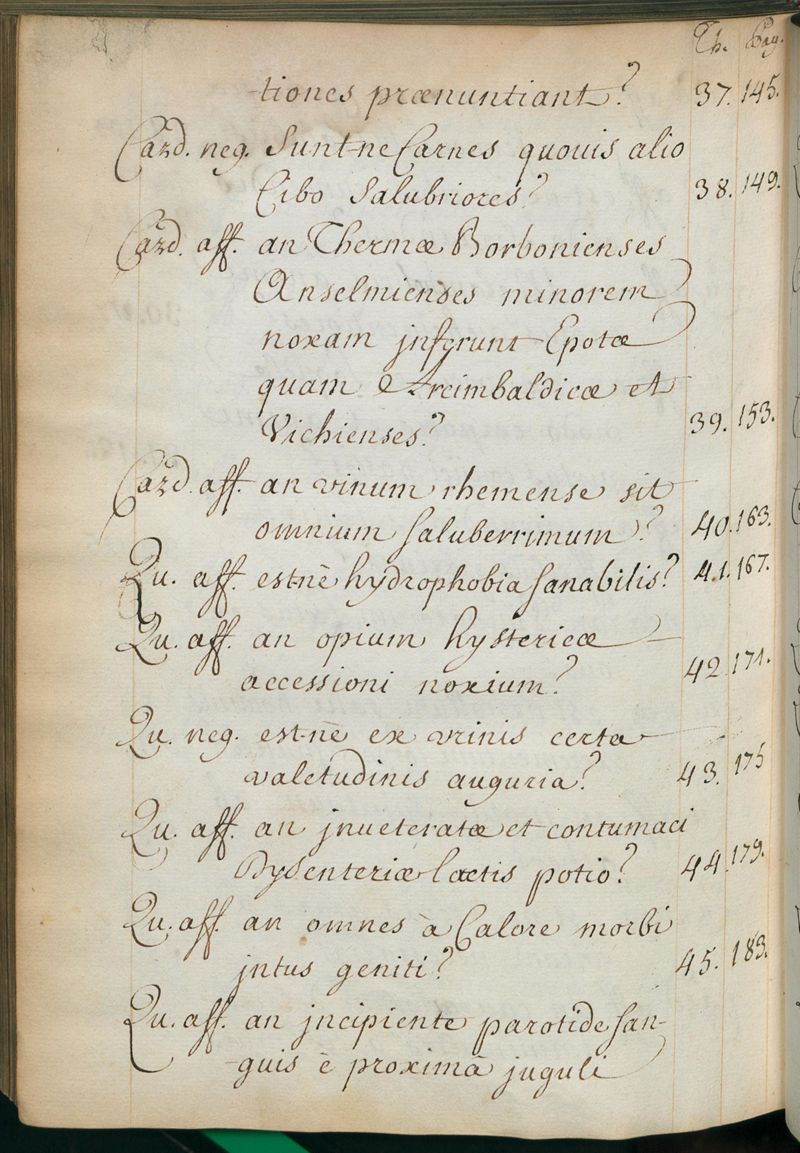 Th. Pag.
-tiones prænuntiant? 37. 145.
Card. neg. Sunt-ne Carnes quouis alio
Cibo Salubriores? 38. 149.
Card. aff. an Thermæ Borbonienses
Anselmienses minorem
noxam jnferunt Epotæ
quam Arcimbaldicæ et
Vichienses? 39. 153.
Card. aff. an vinum rhemense sit
omnium Saluberrimum? 40. 163.
Qu. aff. est-nè hydrophobia sanabilis? 41. 167.
Qu. aff. an opium hystericæ
accessioni noxium? 42. 171.
Qu. neg. est-nè ex vrinis certa
valetudinis auguria? 43. 175
Qu. aff. an jnueteratæ et contumaci
Dysenteriæ lactis potio? 44. 179.
Qu. aff. an omnes à Calore morbi
jntus geniti? 45. 183.
Qu. aff. an jncipiente parotide san-
-guis è proximâ juguli